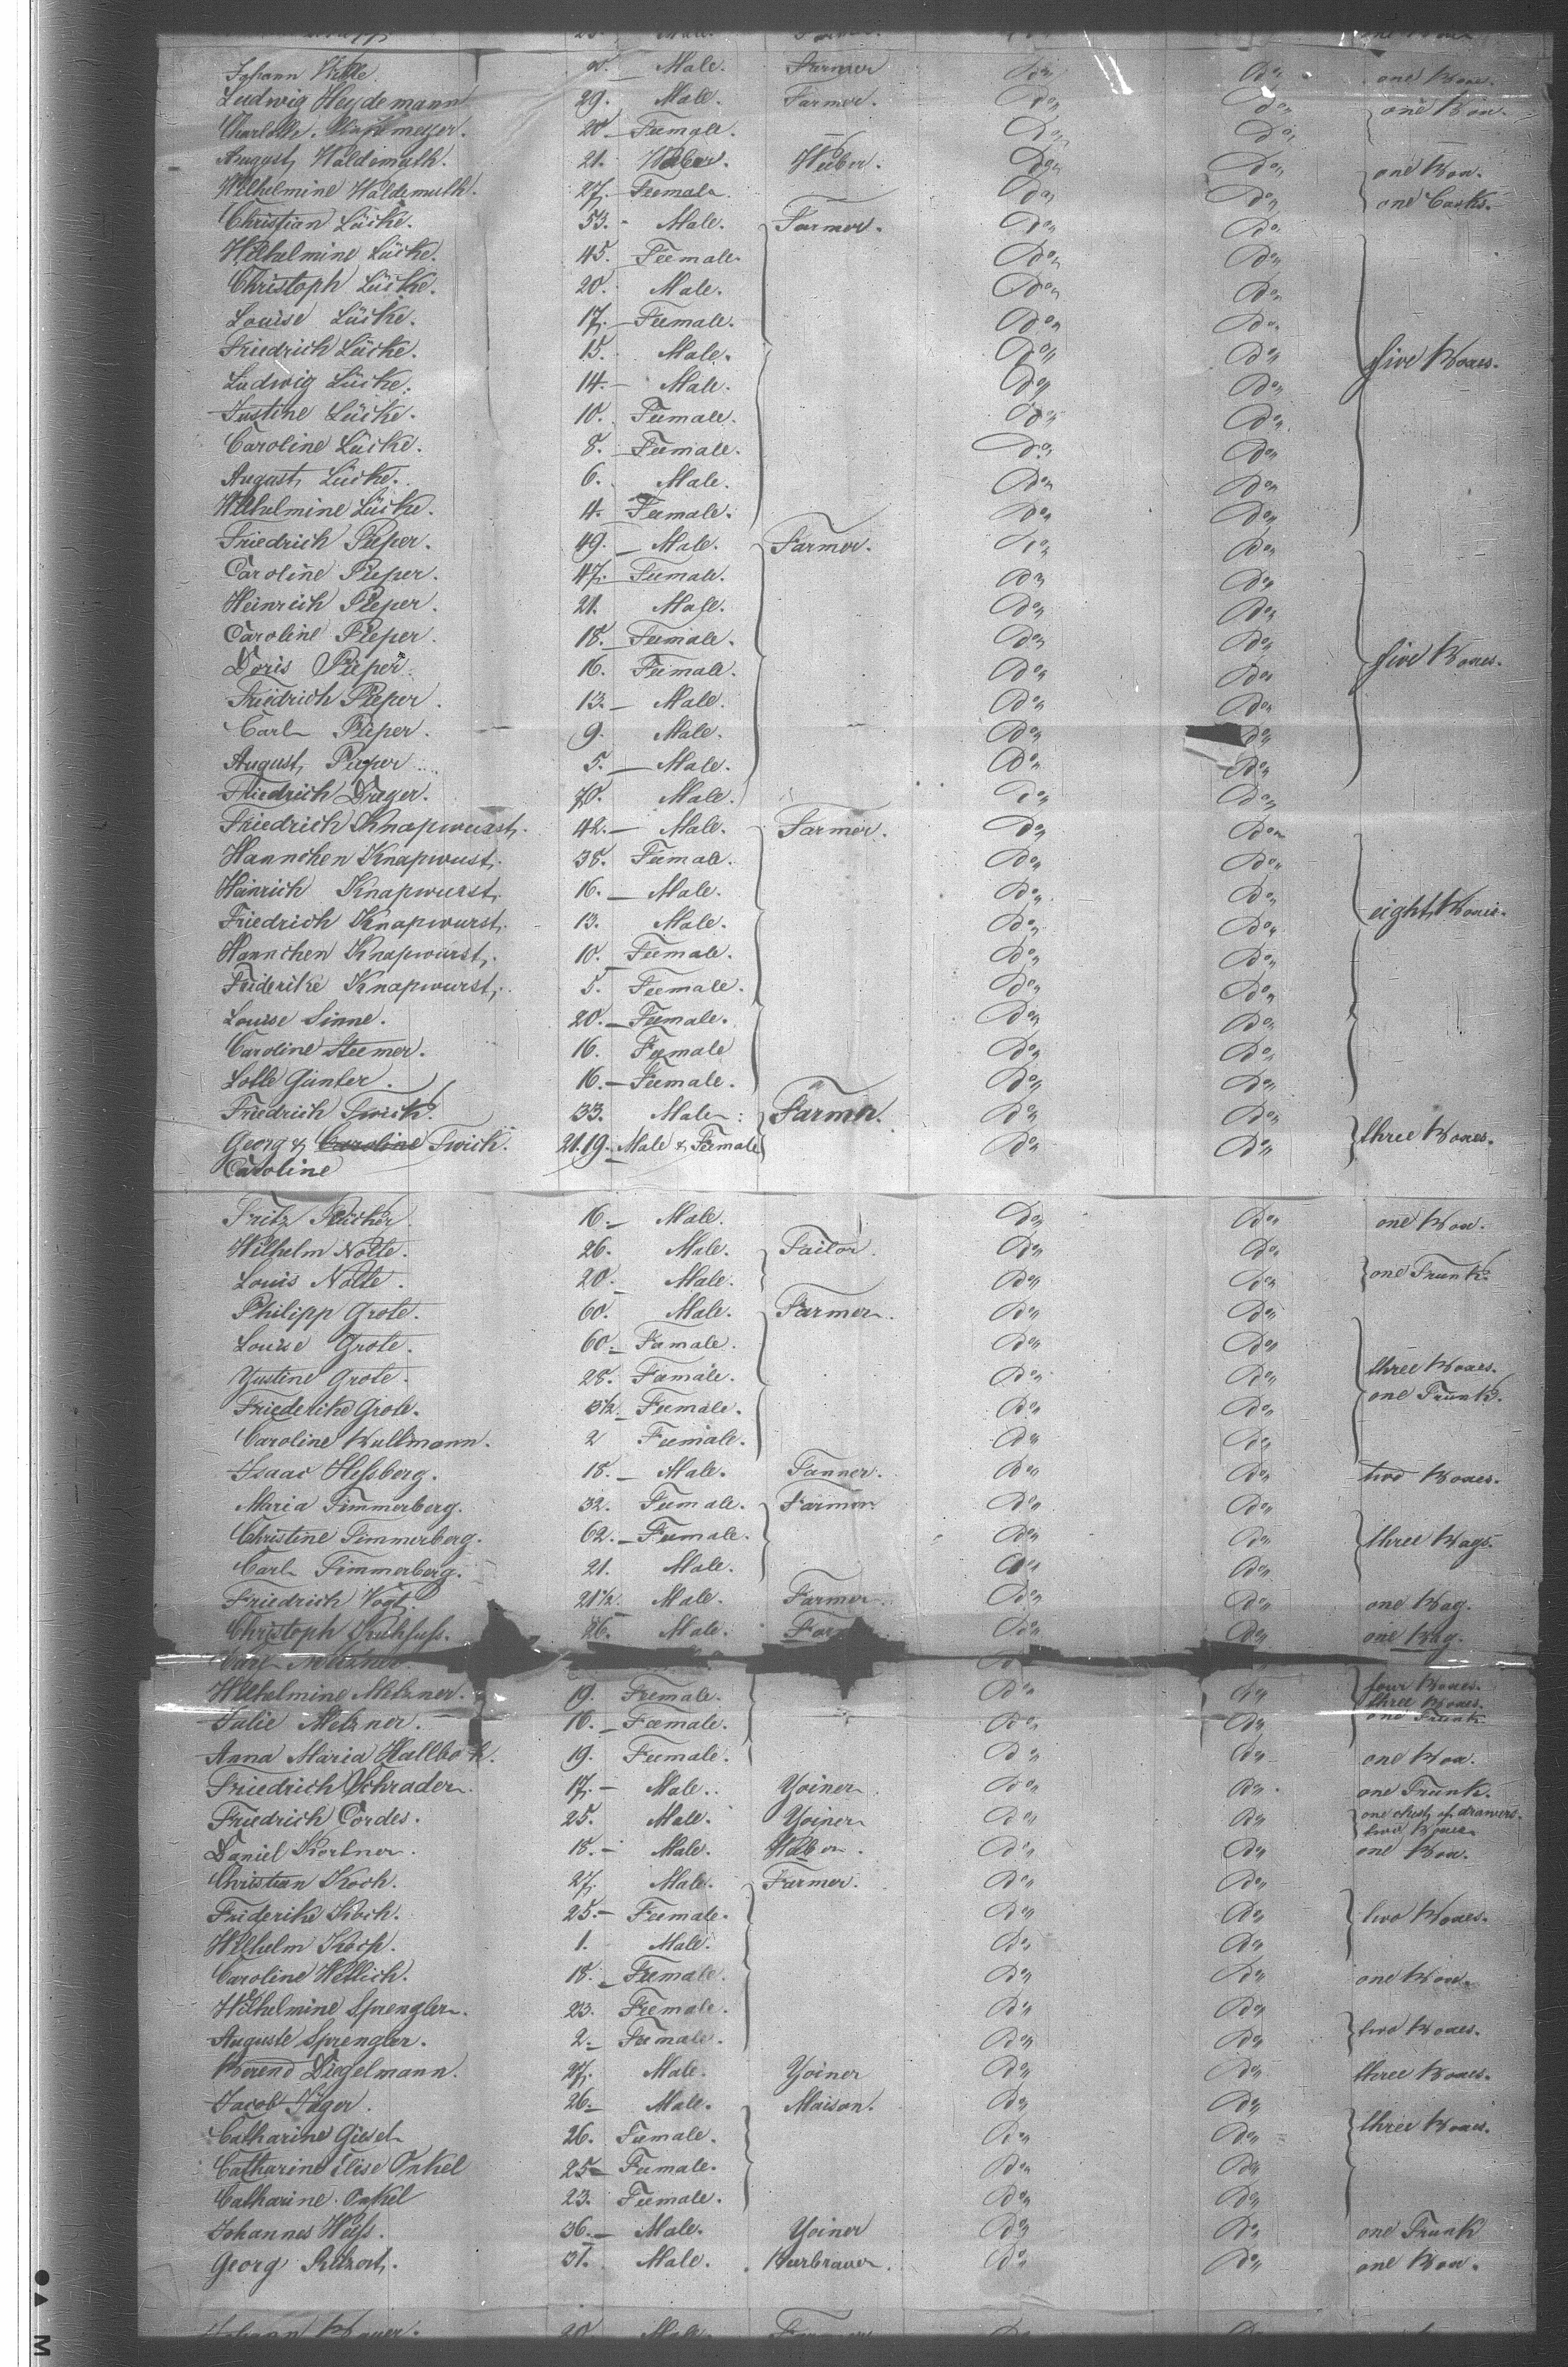 Johann 2. Male. Farmer Do. Do. one Box.
Ludwig Heydemann 29. Male. Farmer. Do. Do. one Box.
Charlotte 20 Feemale. Do. Do.
August Waldemuth. 21. Weber. Weber. Do. Do. one Box.
Wilhelmine Waldemuth. 27. Feemale Do. Do. one Casks.
Christian Lücke. 53. Male. Farmer. Do. Do.
Wilhelmine Lücke. 45. Feemale. Do. Do.
Christoph Lücke. 20. Male. Do. Do.
Louise Lücke. 17. Feemale. Do. Do.
Friedrich Lücke. 15. Male. Do. Do. five Boxes.
Ludwig Lücke. 14. Male. Do. Do.
Justine Lücke. 10. Feemale. Do. Do.
Caroline Lücke. 8. Feemale. Do. Do.
August Lücke. 6. Male. Do. Do.
Wilhelmine Lücke. 4. Feemale. Do. Do.
Friedrich Pieper. 49. Male. Farmer. Do. Do.
Caroline Pieper. 47. Feemale. Do. Do.
Heinrich Pieper. 21. Male. Do. Do.
Caroline Pieper. 18. Feemale. Do. Do.
Doris Pieper. 16. Feemale. Do. Do. five Boxes.
Friedrich Pieper. 13. Male. Do. Do.
Carl Pieper. 9. Male. Do. Do.
August Pieper 5. Male. Do. Do.
Friedrich Drager. 70. Male. Do. Do.
Friedrich Knapwurst. 42. Male. Farmer. Do. Do.
Hannchen Knapwust. 38. Feemale. Do. Do.
Heinrich Knapwurst. 16. Male. Do. Do.
Friedrich Knapwurst. 13. Male. Do. Do. eight Boxes.
Hannchen Knapwurst. 10. Feemale. Do. Do.
Friderike Knapwurst. 5. Feemale. Do. Do.
Louise Sinne. 20. Feemale. Do. Do.
Caroline Steemer. 16. Feemale Do. Do.
Lotte Günter. 16. Feemale. Do. Do.
Friedrich Twich. 33. Male. Farmer. Do. Do.
Georg & Caroline Twich. 21.19. Male & Feemale Do. Do. three Boxes.
Caroline
Fritz 16. Male. Do. Do. one Box.
Wilhelm Nolte. 26. Male. Tailor. Do. Do.
Louis Nolte. 20. Male. Do. Do. one Trunk.
Philipp Grote. 60. Male. Farmer. Do. Do.
Louise Grote. 60. Famale. Do. Do.
Yustine Grote. 28. Faemale. Do. Do. three Boxes.
Friederike Grote. 3½. Feemale. Do. Do. one Trunk.
Caroline Bullmann. 2 Feemale. Do. Do.
Isaac Heßberg. 18. Male. Tanner. Do. Do. two Boxes.
Maria Timmerberg. 32. Feemale. Farmer Do. Do.
Christine Timmerberg. 62. Feemale. Do. Do. three Bags.
Carl Timmerberg. 21. Male. Do. Do.
Friedrich Vogt. 21½. Male. Farmer. Do. Do. one Bag.
Christoph Kuhfuß. 26. Male. Do. Do. one Bag.
Carl
Wilhelmine Metzner. 19. Feemale. Do. Do. four Boxes.
three Boxes.
Julie Metzner. 16. Faemale. Do. Do. one Trunk
Anna Maria 19. Feemale. Do. Do. one Box.
Friedrich Schrader. 17. Male. Yoiner. Do. Do. one Trunk.
Friedrich Cordes. 25. Male. Yoiner Do. Do. one chest of drawers.
two Boxes
Daniel Kortner. 18. Male. Weber. Do. Do. one Box.
Christian Koch. 27. Male. Farmer. Do. Do.
Friderike Koch. 25. Feemale. Do. Do. two Boxes.
Wilhelm Koch. 1. Male. Do. Do.
Caroline Wettich. 18. Feemale. Do. Do. one Box.
Wilhelmine Sprengler. 23. Feemale. Do. Do.
Auguste Sprengler. 2. Feemale. Do. Do. two Boxes.
Berend Diegelmann. 27. Male. Yoiner Do. Do. three Boxes.
Jacob Jäger. 26. Male. Maison. Do. Do.
Catharine Giesel 26. Famale. Do. Do. three Boxes.
Catharine Elise Onkel 25 Famale. Do. Do.
Catharine Onkel 23. Feemale. Do. Do.
Johannes Weiß. 36. Male. Yoiner Do. Do. one Trunk
Georg 31. Male. Do. Do. one Box.
Johann Bauer. 20 Male. Farmer Do. Do.
M